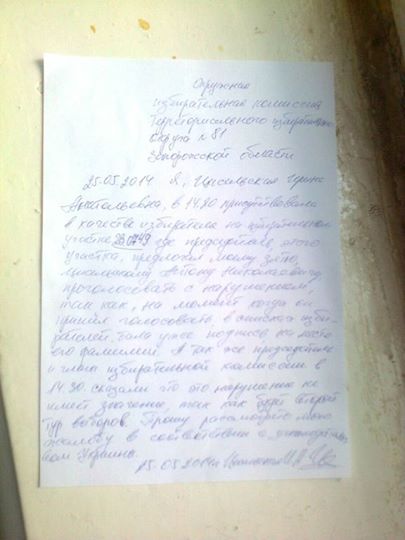 Окружная
избирательная комиссия
Территориального избирательного
округа №81
Запорожской области
25.05.2014 Я,
Анатольевна, в 14.20 присутствовала
в качестве избирателя на избирательном
участке где председатель этого
участка, предложил моему зятю,
Антону Николаевичу
проголосовать с нарушением,
так как, на момент когда он
пришел голосовать в списках изби-
рателей, была уже подпись на месте
его фамилии. А так же председатель
и глава избирательной комиссии в
14.30. сказали что это нарушение не
имеет значение, так как будет второй
тур выборов. Прошу рассмотреть мою
жалобу в соответствии с
вом Украины.
25.05.2014г